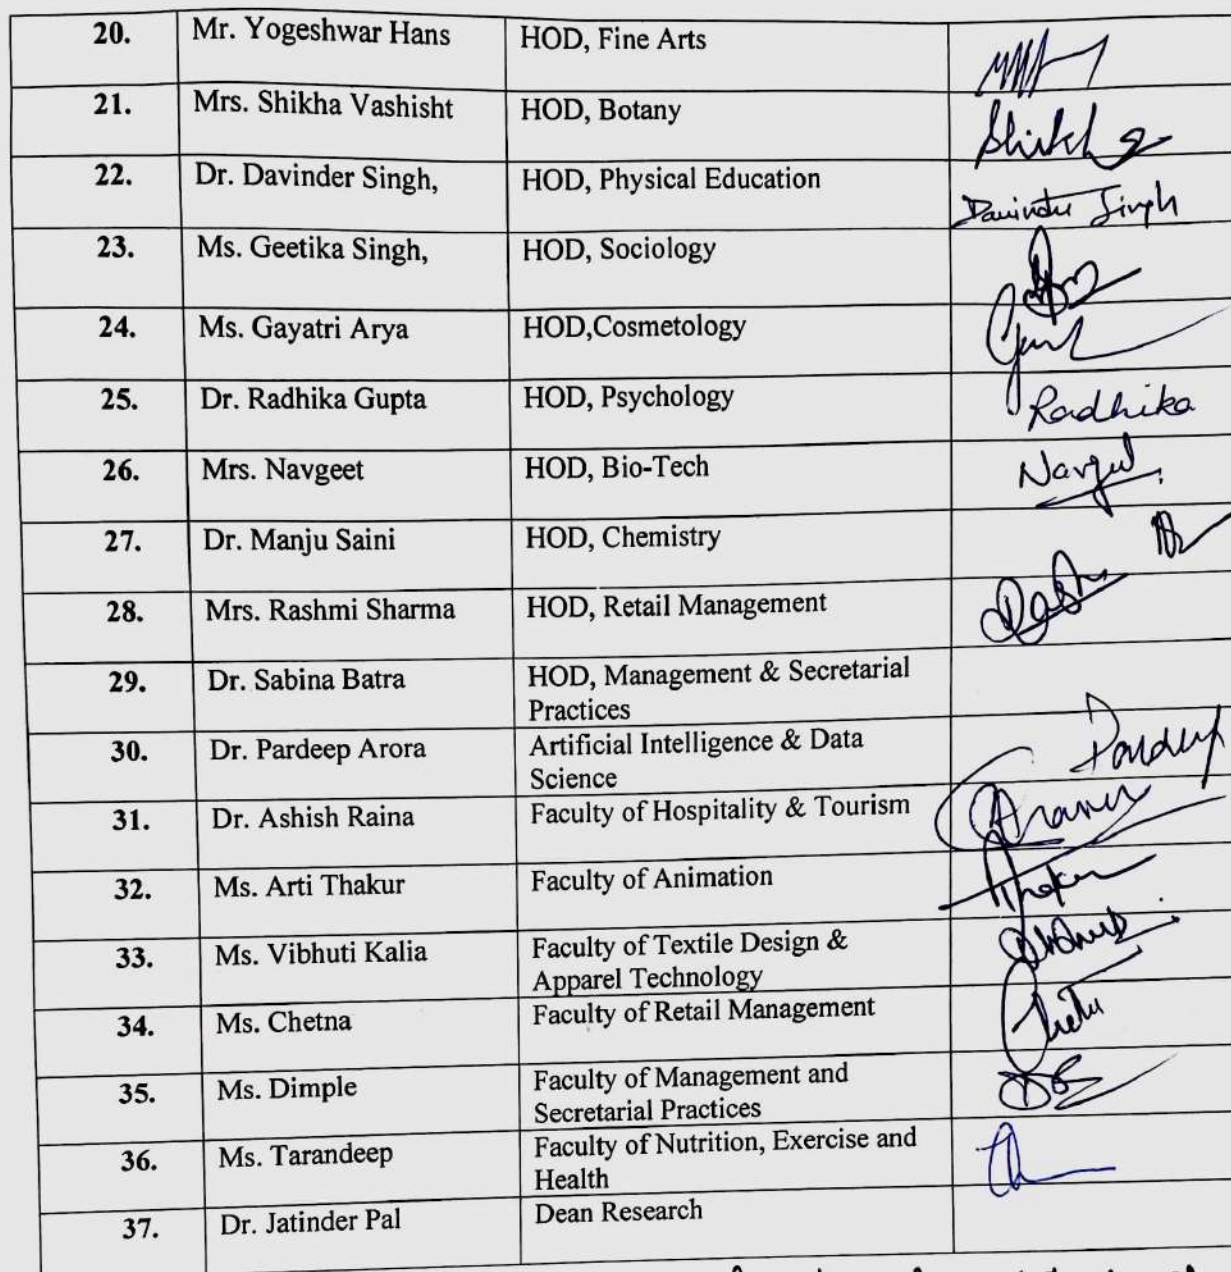 20. Mr. Yogeshwar Hans HOD, Fine Arts
21. Mrs. Shikha Vashisht HOD, Botany Shikha
22. Dr. Davinder Singh, HOD, Physical Education Davinder Singh
23. Ms. Geetika Singh, HOD, Sociology
24. Ms. Gayatri Arya HOD,Cosmetology
25. Dr. Radhika Gupta HOD, Psychology Radhika
26. Mrs. Navgeet HOD, Bio-Tech
27. Dr. Manju Saini HOD, Chemistry
28. Mrs. Rashmi Sharma HOD, Retail Management
29. Dr. Sabina Batra HOD, Management & Secretarial
Practices
30. Dr. Pardeep Arora Artificial Intelligence & Data
Science Pardeep
31. Dr. Ashish Raina Faculty of Hospitality & Tourism
32. Ms. Arti Thakur Faculty of Animation Thakur
33. Ms. Vibhuti Kalia Faculty of Textile Design &
Apparel Technology
34. Ms. Chetna Faculty of Retail Management
35. Ms. Dimple Faculty of Management and
Secretarial Practices
36. Ms. Tarandeep Faculty of Nutrition, Exercise and
Health
37. Dr. Jatinder Pal Dean Research